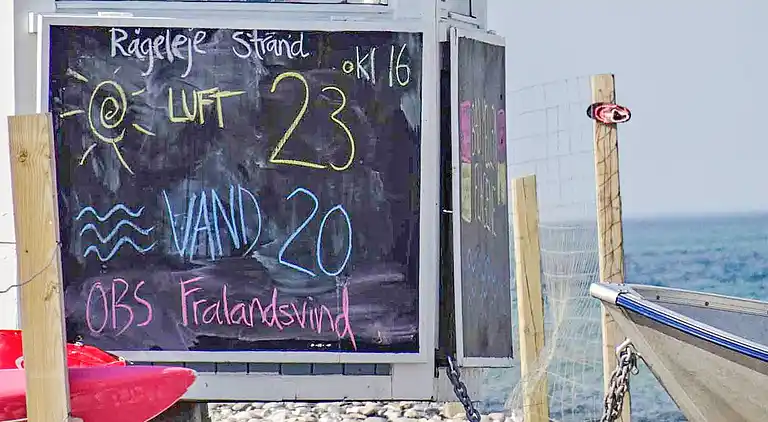 Rågeleje Strand
kl 16
LUFT 23
VAND 20
OBS Fralandsvind